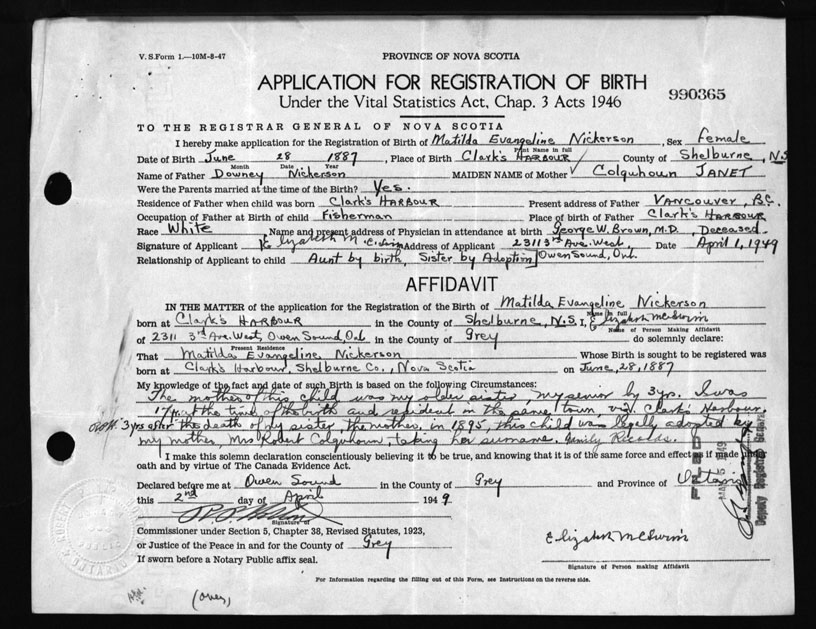 V. S. Form 1.—10M-8-47
PROVINCE OF NOVA SCOTIA
APPLICATION FOR REGISTRATION OF BIRTH
Under the Vital Statistics Act, Chap. 3 Acts 1946
990365
TO THE REGISTRAR GENERAL OF NOVA SCOTIA
I hereby make application for the Registration of Birth of Matilda Evangeline Nickerson, Sex female
Print Name in full
Date of Birth June 28 1887, Place of Birth Clark's HARBOUR County of Shelburne, N.S
Month Date Year
Name of Father Downey Nickerson MAIDEN NAME of Mother Colquhoun JANET
Were the Parents married at the time of the Birth? Yes.
Residence of Father when child was born Clark's HARBOUR Present address of Father VANCOUVER, B.C.
Occupation of Father at Birth of child fisherman Place of birth of Father Clark's HARBOUR
Race White Name and present address of Physician in attendance at birth George W. Brown, M.D., Deceased.
Signature of Applicant Elizabeth M. Address of Applicant 2311 3rd Ave. West, Date April 1, 1949
Relationship of Applicant to child Aunt by birth, Sister by Adoption Owen Sound, Ont.
AFFIDAVIT
IN THE MATTER of the application for the Registration of the Birth of Matilda Evangeline Nickerson
Name in full
born at Clark's HARBOUR in the County of Shelburne, N.S. I, Elizabeth
Name of Person Making Affidavit
of 2311 3rd Ave. West, Owen Sound, Ont. in the County of Grey do solemnly declare:
Present Residence
That Matilda Evangeline Nickerson Whose Birth is sought to be registered was
born at Clark's Harbour, Shelburne Co., Nova Scotia on June, 28, 1887
My knowledge of the fact and date of such Birth is based on the following Circumstances:
The mother of this child was my older sister, my senior by 3 yrs. I was
17 yr. at the time of the birth and resident in the same town, viz. Clark's Harbour.
3 yrs after the death of my sister, the mother, in 1895, this child was legally adopted by
my mother, Mrs Robert Colquhoun, taking her surname. Family Records.
I make this solemn declaration conscientiously believing it to be true, and knowing that it is of the same force and effect as if made under
oath and by virtue of The Canada Evidence Act.
Declared before me at Owen Sound in the County of Grey and Province of Ontario
this 2nd day of April 1949.
Signature of
Commissioner under Section 5, Chapter 38, Revised Statutes, 1923,
or Justice of the Peace in and for the County of Grey
If sworn before a Notary Public affix seal.
FILED
MAY 5 1949
Deputy Registrar General
Elizabeth
Signature of Person making Affidavit
For Information regarding the filling out of this Form, see Instructions on the reverse side.
(over)